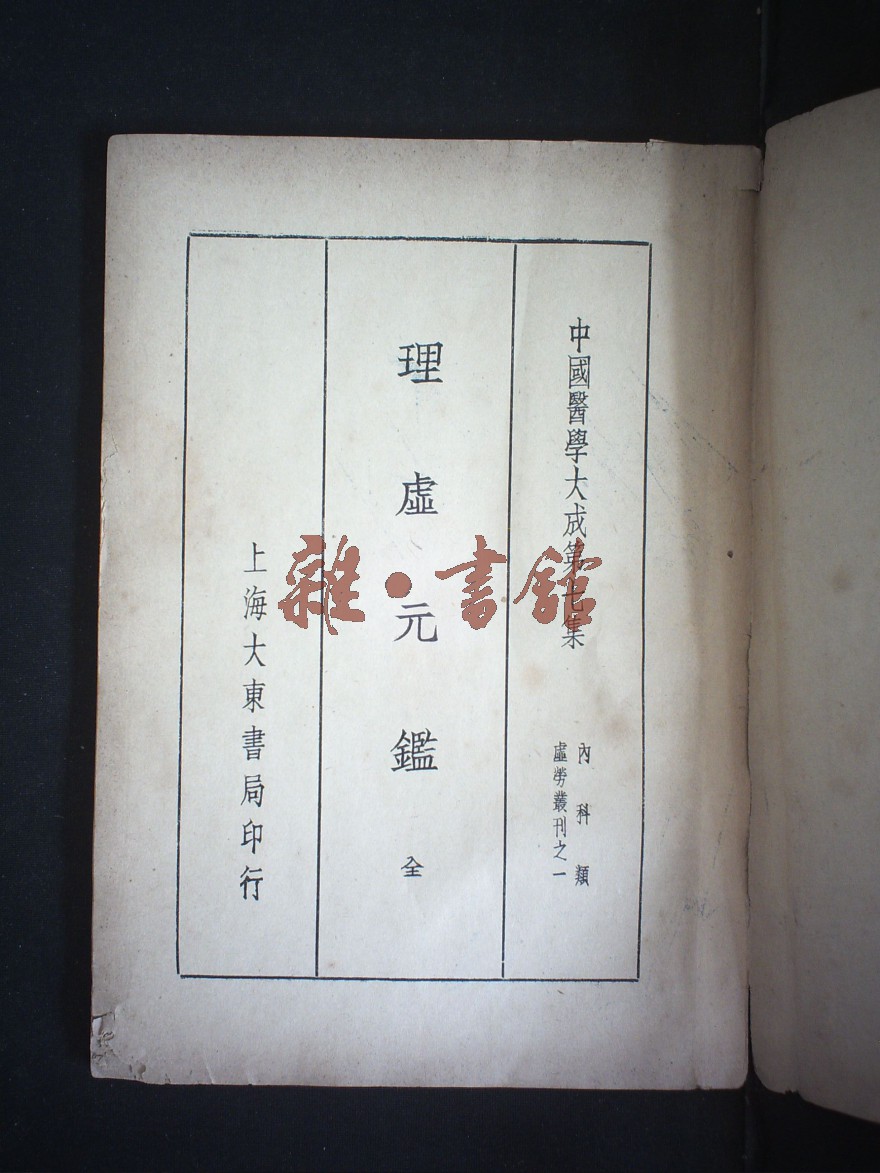 中國醫學大成第七集
內科類
虛勞叢刊之一
理虛元鑑 全
上海大東書局印行
雜·書館